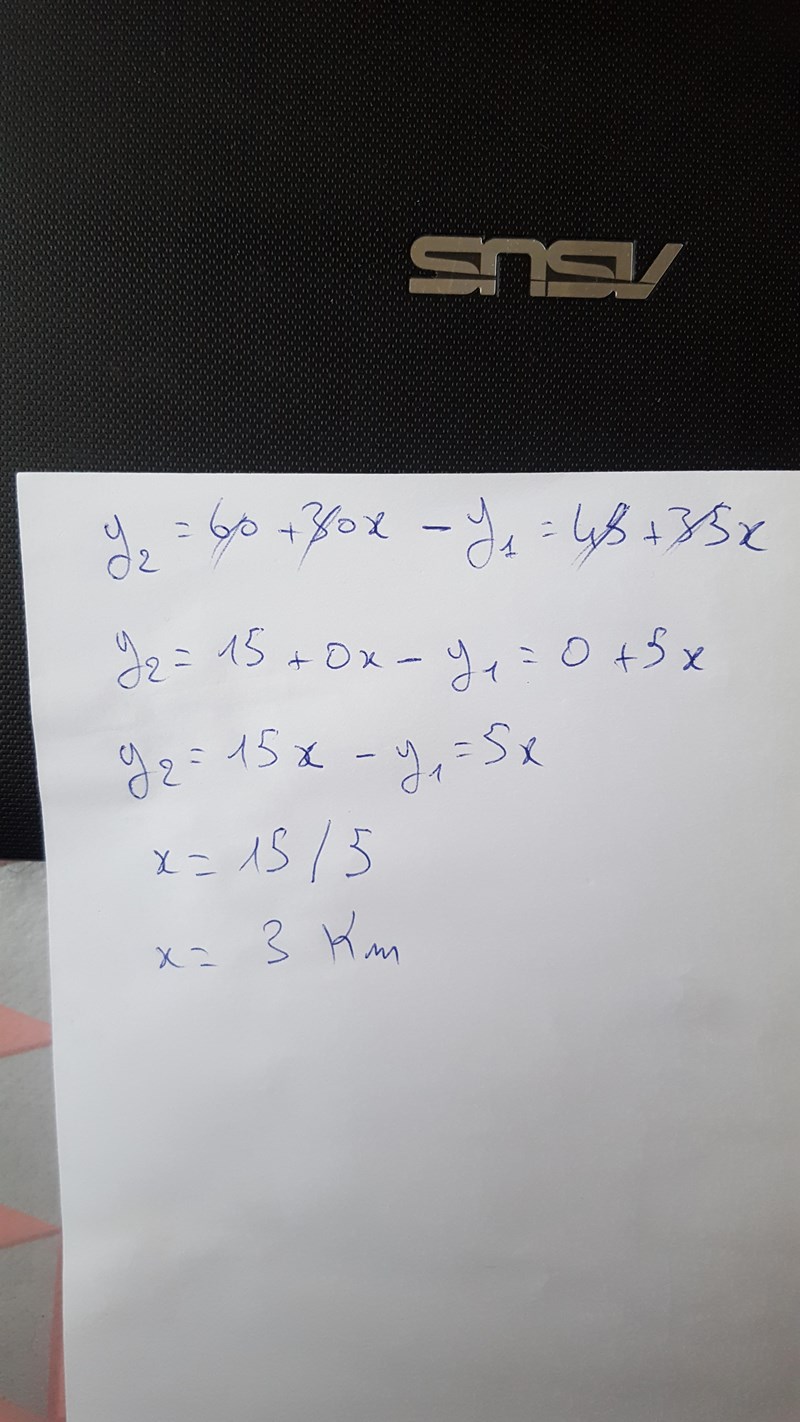 ASUS
y₂ = 60 + 30x - y₁ = 45 + 35x
y₂ = 15 + 0x - y₁ = 0 + 5x
y₂ = 15x - y₁ = 5x
x = 15 / 5
x = 3 Km